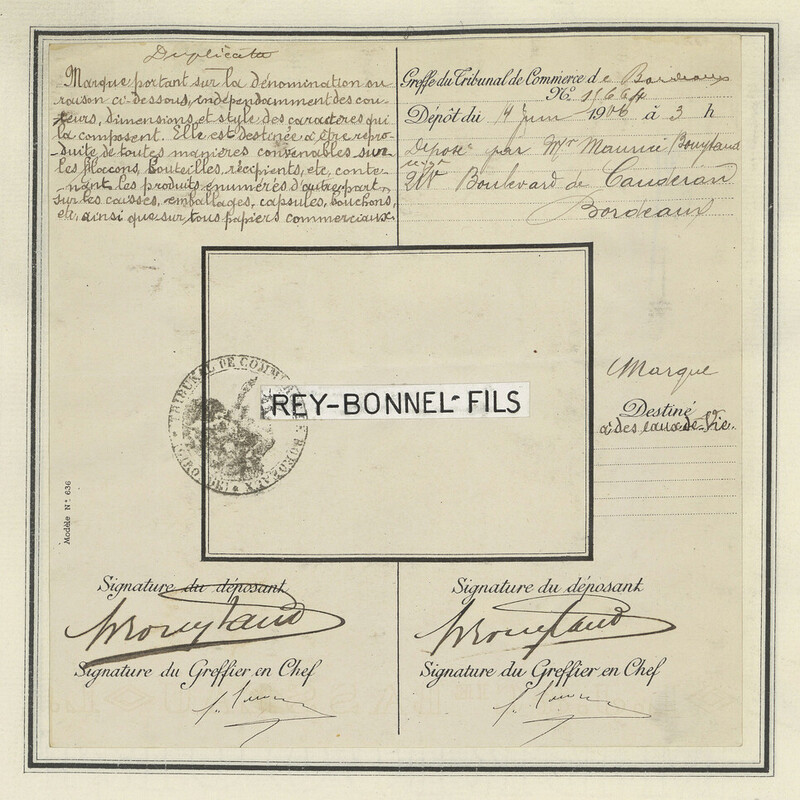 Duplicata
Marque portant sur la dénomination ou
raison ci-dessous, indépendamment des cou-
leurs, dimensions, et style des caractères qui
la composent. Elle est destinée à être repro-
duite de toutes manières convenables sur
les flacons, bouteilles, récipients, etc, conte-
nant les produits énumérés d'autre part,
sur les caisses, emballages, capsules, bouchons,
etc, ainsi que sur tous papiers commerciaux.
Greffe du Tribunal de Commerce de Bordeaux
Nº
Dépôt du 14 juin 1906 à 3 h
Déposé par Mr Maurice
Boulevard de Caudéran
Bordeaux
TRIBUNAL DE COMMERCE DE BORDEAUX
REY-BONNEL FILS
Marque
Destiné
à des eaux-de-Vie.
Modèle Nº 636
Signature du déposant
Signature du déposant
Signature du Greffier en Chef
Signature du Greffier en Chef